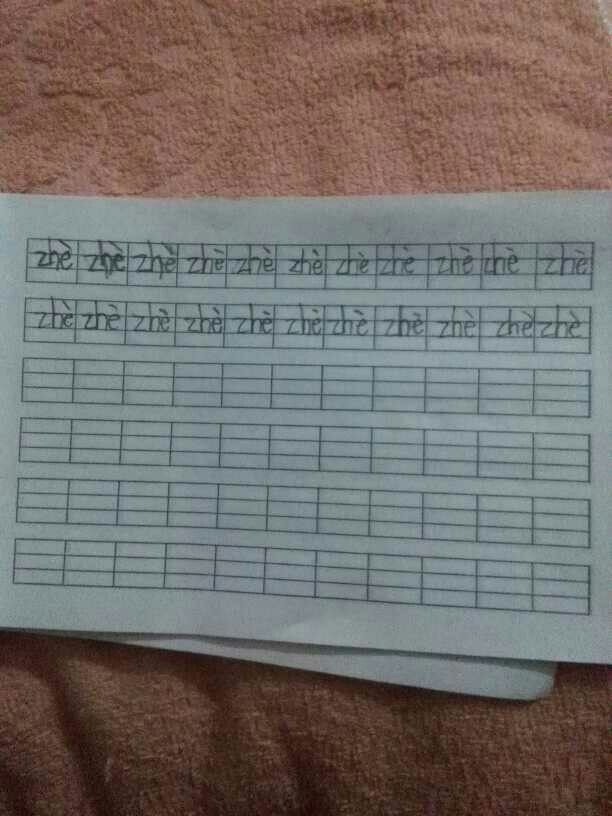 zhè zhè zhè zhè zhè zhè zhè zhè zhè zhè zhè
zhè zhè zhè zhè zhè zhè zhè zhè zhè zhè zhè